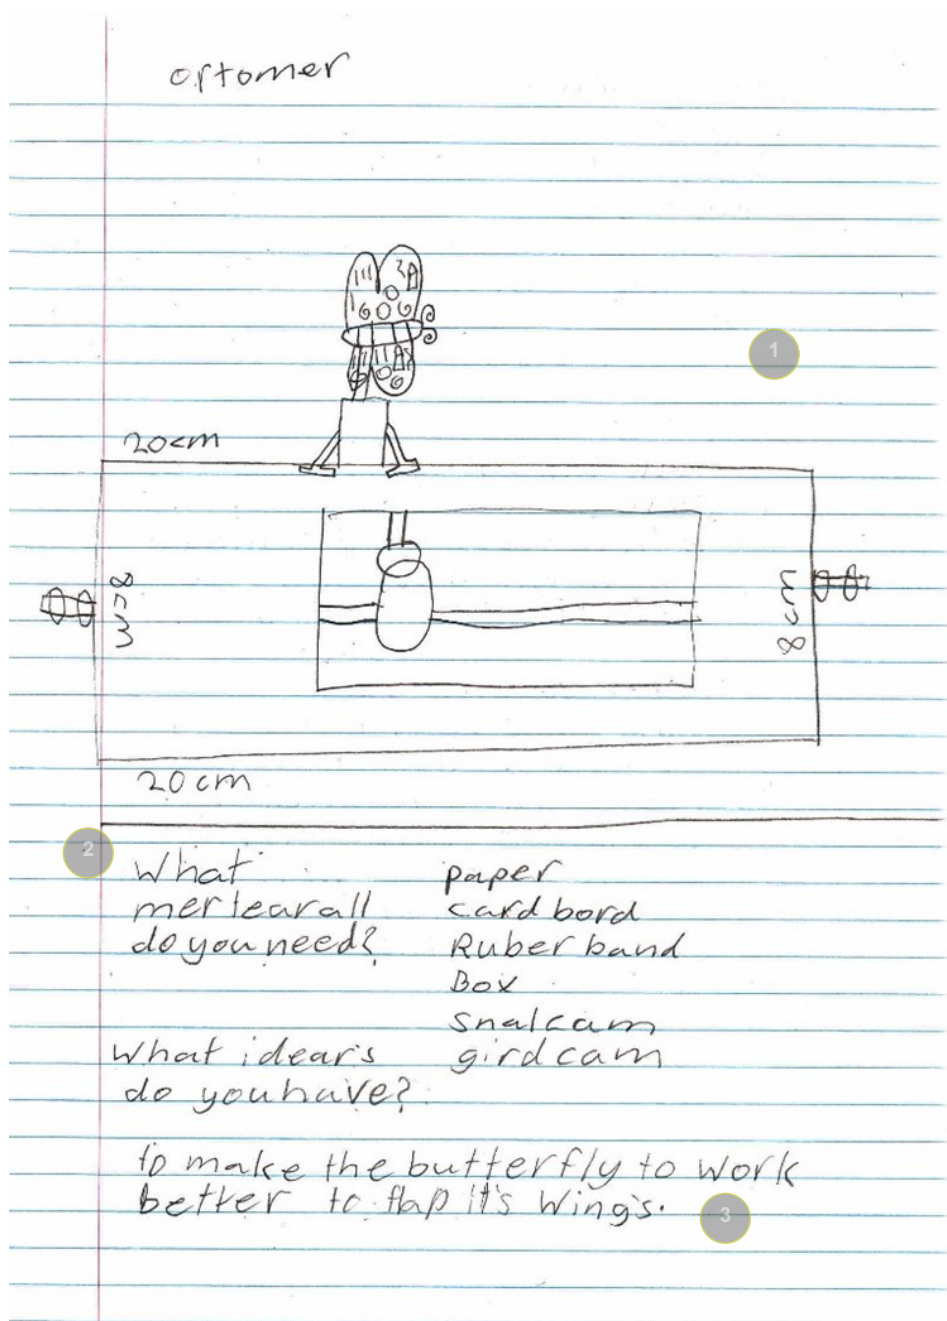 ortomer
1
20cm
8cm
8cm
20cm
2
What
mertearall
do you need?
paper
card bord
Ruber band
Box
snalcam
gird cam
What idear's
do you have?
to make the butterfly to work
better to flap it's Wing's.
3